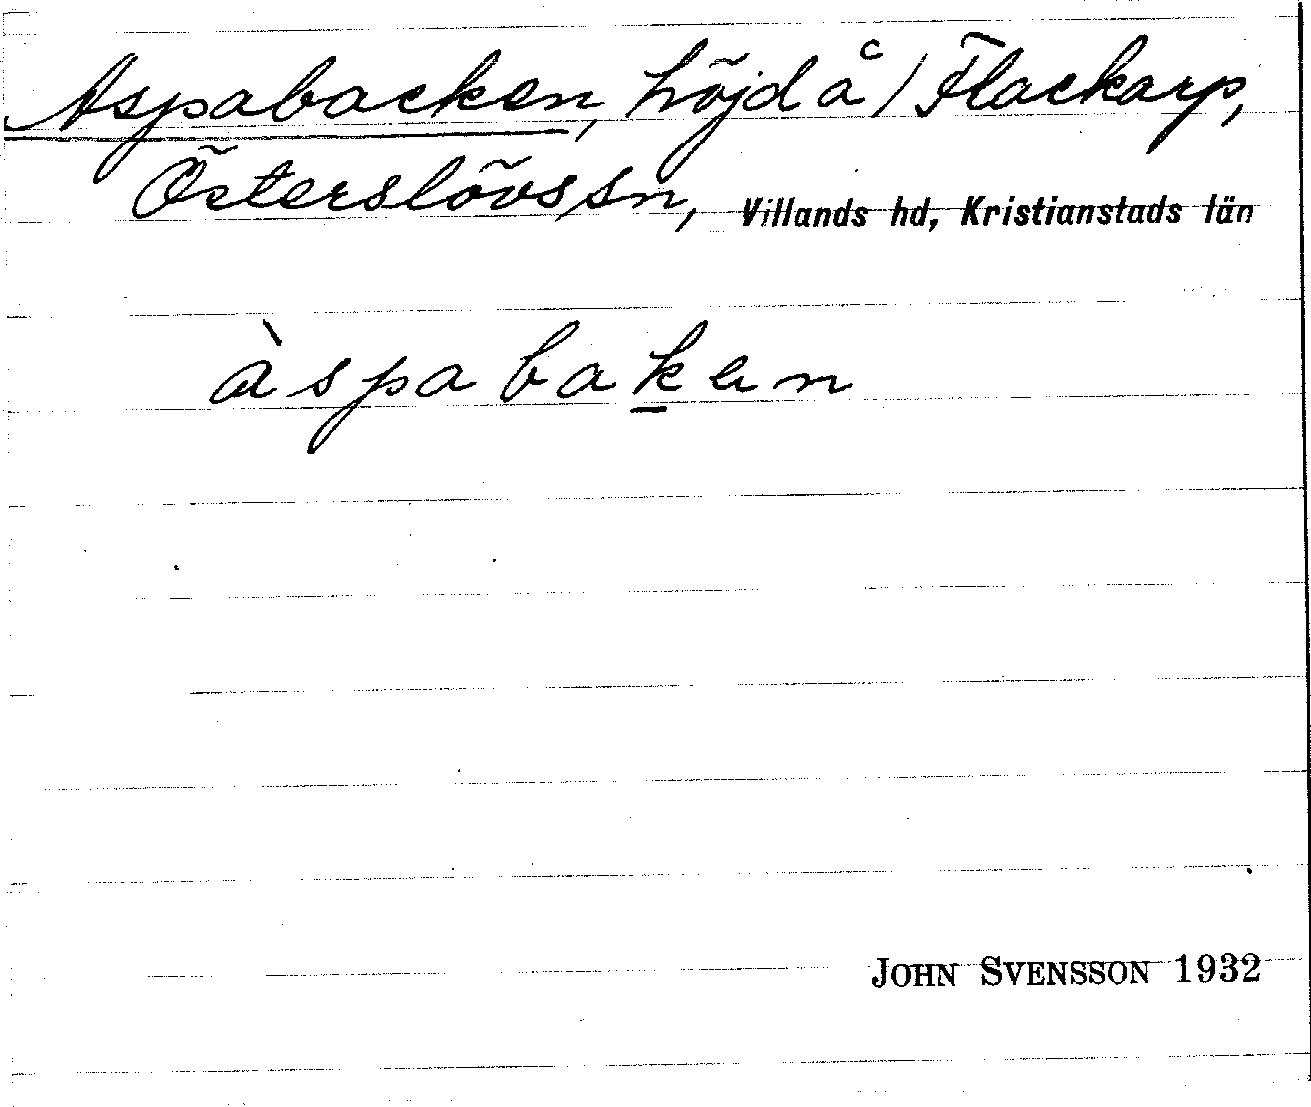 Aspabacken, höjd å / Flackarp,
Österslövs sn, Villands hd, Kristianstads län
àspabaken
JOHN SVENSSON 1932